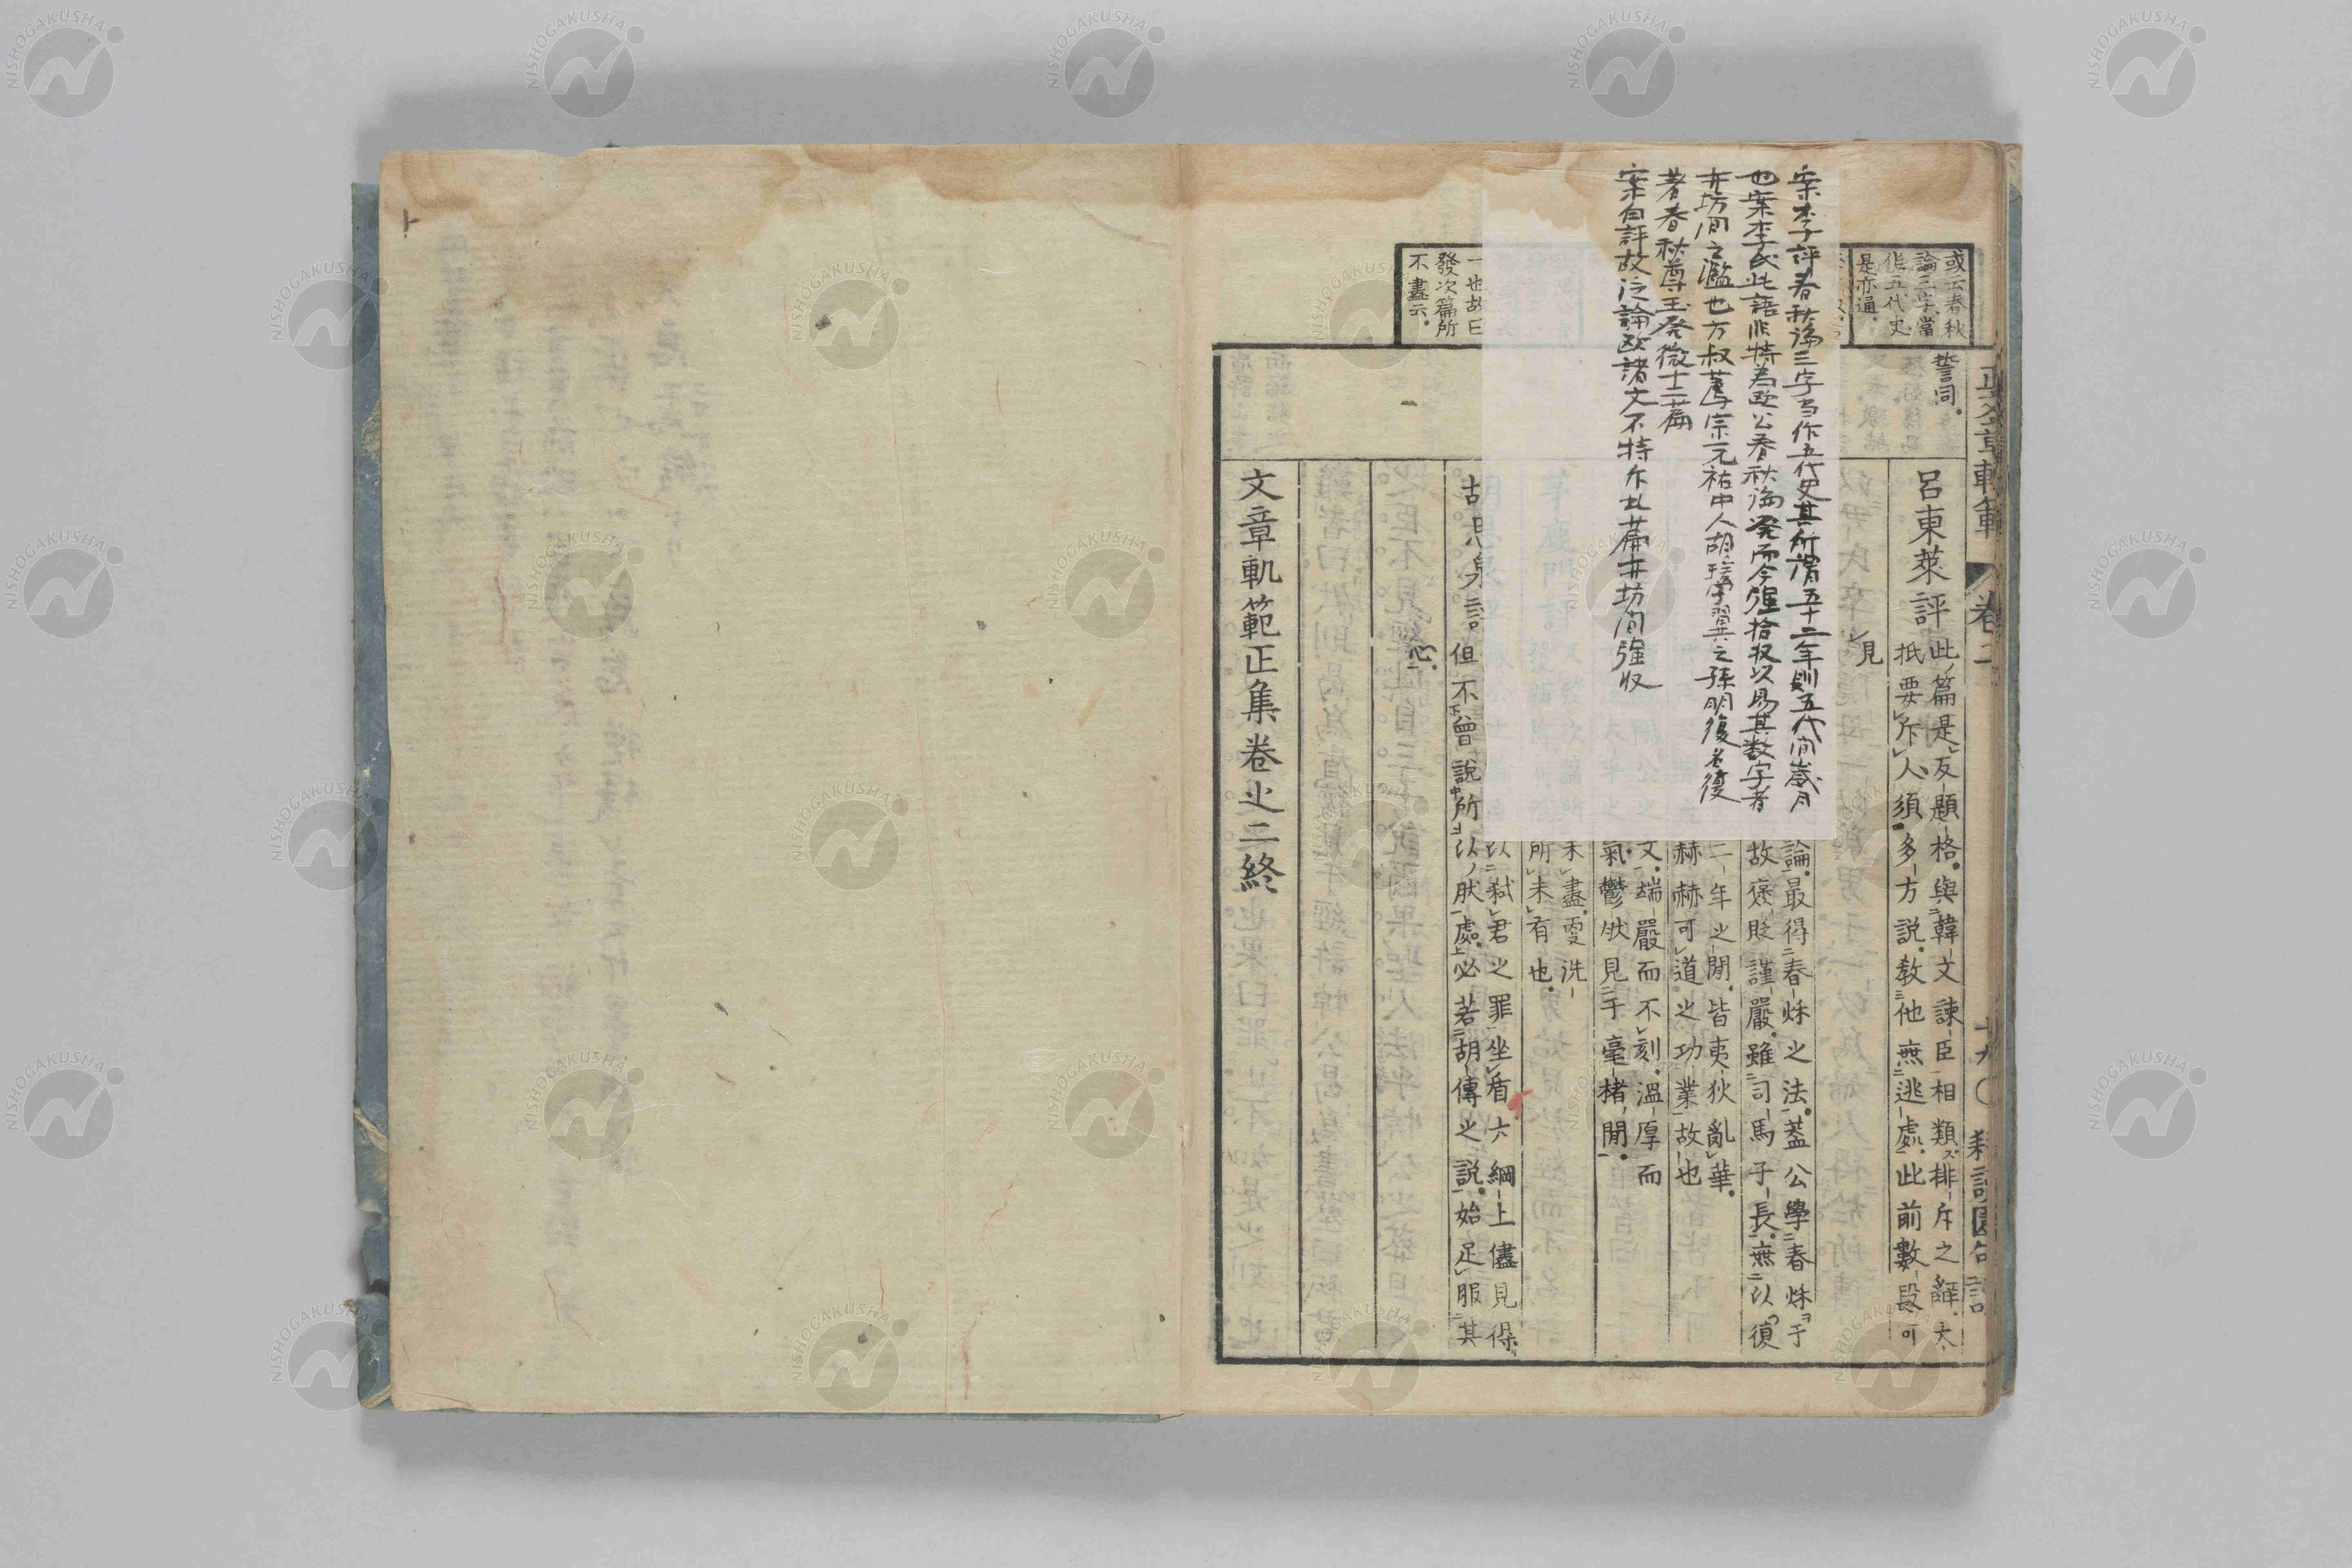 或云春秋
論三字當
作五代史
是亦通
誓同
呂東萊評
此篇是反題格與韓文諫臣相類排斥之辭大
抵要斥人須多方説教他無逃處此前數段可
見
案李評春秋論三字当作五代史其所謂五十二年則五代間歳月
也案李氏此語非特為欧公春秋論発而今強拾収以易其数字者
亦坊間之濫也方叔薦宗元祐中人胡瑗字翼之孫明復名復
著春秋尊王発微十二篇
案旬評故泛論欧諸文不特斥此篇亦坊間強収
論最得春秋之法蓋公學春秋于
故褒貶謹嚴雖司馬子長無以復
二年之間皆夷狄亂華
赫赫可道之功業故也
文端嚴而不刻溫厚而
氣鬱然見于毫楮間
未盡雯洗
所未有也
一也故曰
發次篇所
不盡云
以弑君之罪坐盾六綱上儘見得
胡思泉評
但不曾説所以然處必若胡傳之説始足服其
心
文章軌範正集卷之二終